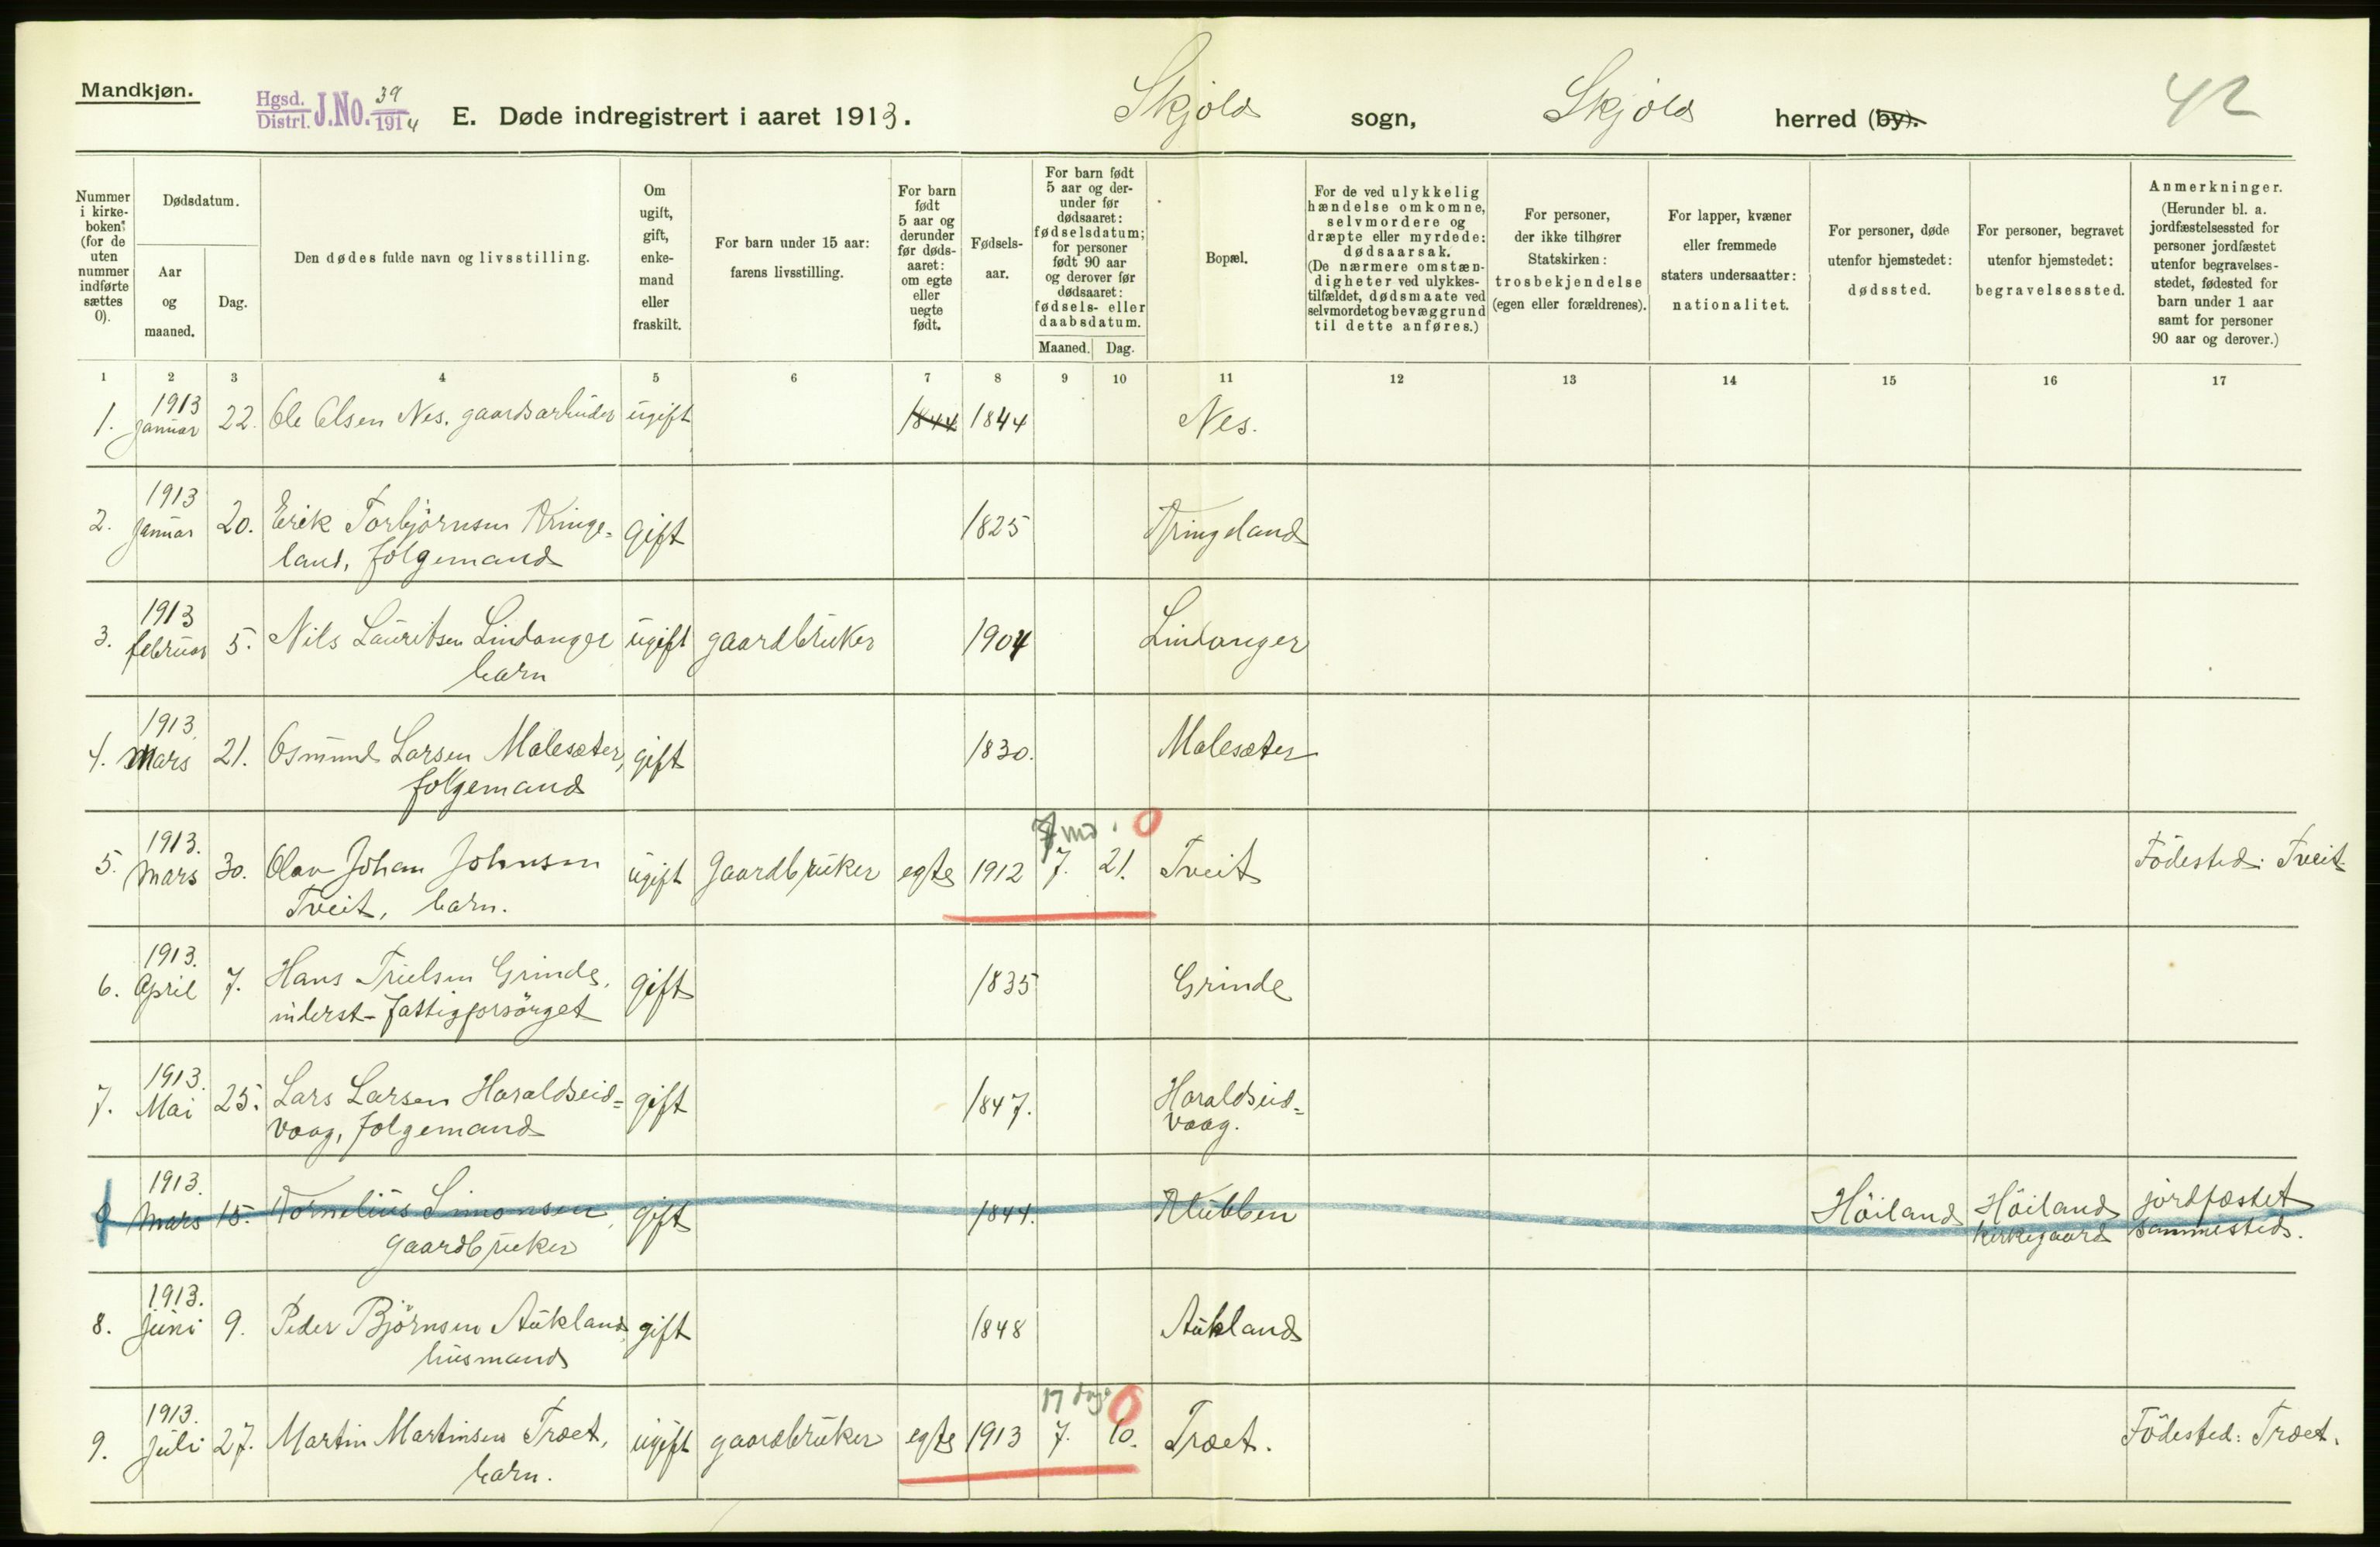 Mandkjøn.
Hgsd. Distrl. J.No. 39 1914
E. Døde indregistrert i aaret 1913.
Skjold sogn, Skjold herred (by).
42
Nummer i kirke- boken (for de uten nummer indførte sættes 0).
Dødsdatum.
Aar og maaned.
Dag.
Den dødes fulde navn og livsstilling.
Om ugift, gift, enke- mand eller fraskilt.
For barn under 15 aar: farens livsstilling.
For barn født 5 aar og derunder før døds- aaret: om egte eller uegte født.
Fødsels- aar.
For barn født 5 aar og der- under før dødsaaret: fødselsdatum; for personer født 90 aar og derover før dødsaaret: fødsels- eller daabsdatum.
Maaned. Dag.
Bopæl.
For de ved ulykkelig hændelse omkomne, selvmordere og dræpte eller myrdede: dødsaarsak. (De nærmere omstæn- digheter ved ulykkes- tilfældet, dødsmaate ved selvmordet og bevæggrund til dette anføres.)
For personer, der ikke tilhører Statskirken: trosbekjendelse (egen eller forældrenes).
For lapper, kvæner eller fremmede staters undersaatter: nationalitet.
For personer, døde utenfor hjemstedet: dødssted.
For personer, begravet utenfor hjemstedet: begravelsessted.
Anmerkninger. (Herunder bl. a. jordfæstelsessted for personer jordfæstet utenfor begravelses- stedet, fødested for barn under 1 aar samt for personer 90 aar og derover.)
1 2 3 4 5 6 7 8 9 10 11 12 13 14 15 16 17
1. 1913 januar 22. Ole Olsen Nes. gaardsarbuder ugift 1844 1844 Nes.
2. 1913 januar 20. Erik Torbjörnsen Kringe= land, folgemand gift 1825 Kringeland
3. 1913 februar 5. Nils Lauritsen Lindanger barn ugift gaardbruker 1904 Lindanger
4. 1913 Mars 21. Osmund Larsen Malesæter, folgemand gift 1830. Malesæter
5. 1913. Mars 30. Olav Johan Johnsen Tveit, barn. ugift gaardbruker egte 1912 7 md. 7. 21. 0 Tveit Födested: Tveit
6. 1913. April 7. Hans Trulsen Grinde, inderst- fattigforsörget gift 1835 Grinde
7. 1913. Mai 25. Lars Larsen Haraldseid= vaag, folgemand gift 1847. Haraldseid= vaag.
0 1913. Mars 15. Kornelius Simonsen, gaardbruker gift 1844. Klubben Höiland Höiland kirkegaard jordfæstet sammesteds.
8. 1913. Juni 9. Peder Björnsen Aukland, husmand gift 1848 Aukland
9. 1913. Juli 27. Martin Martinsen Træet, barn. ugift gaardbruker egte 1913 17 dage 7. 10. 0 Træet. Födested: Træet.